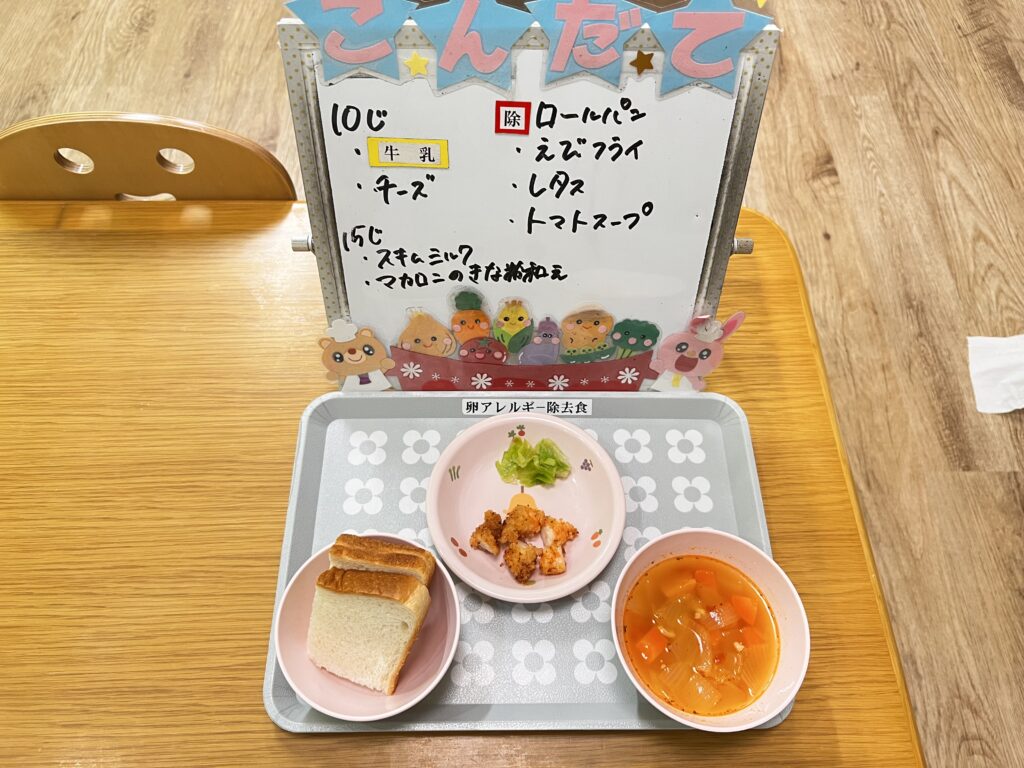 こんだて
10じ
・牛乳
・チーズ
15じ
・スキムミルク
・マカロニのきな粉和え
除 ロールパン
・えびフライ
・レタス
・トマトスープ
卵アレルギー除去食